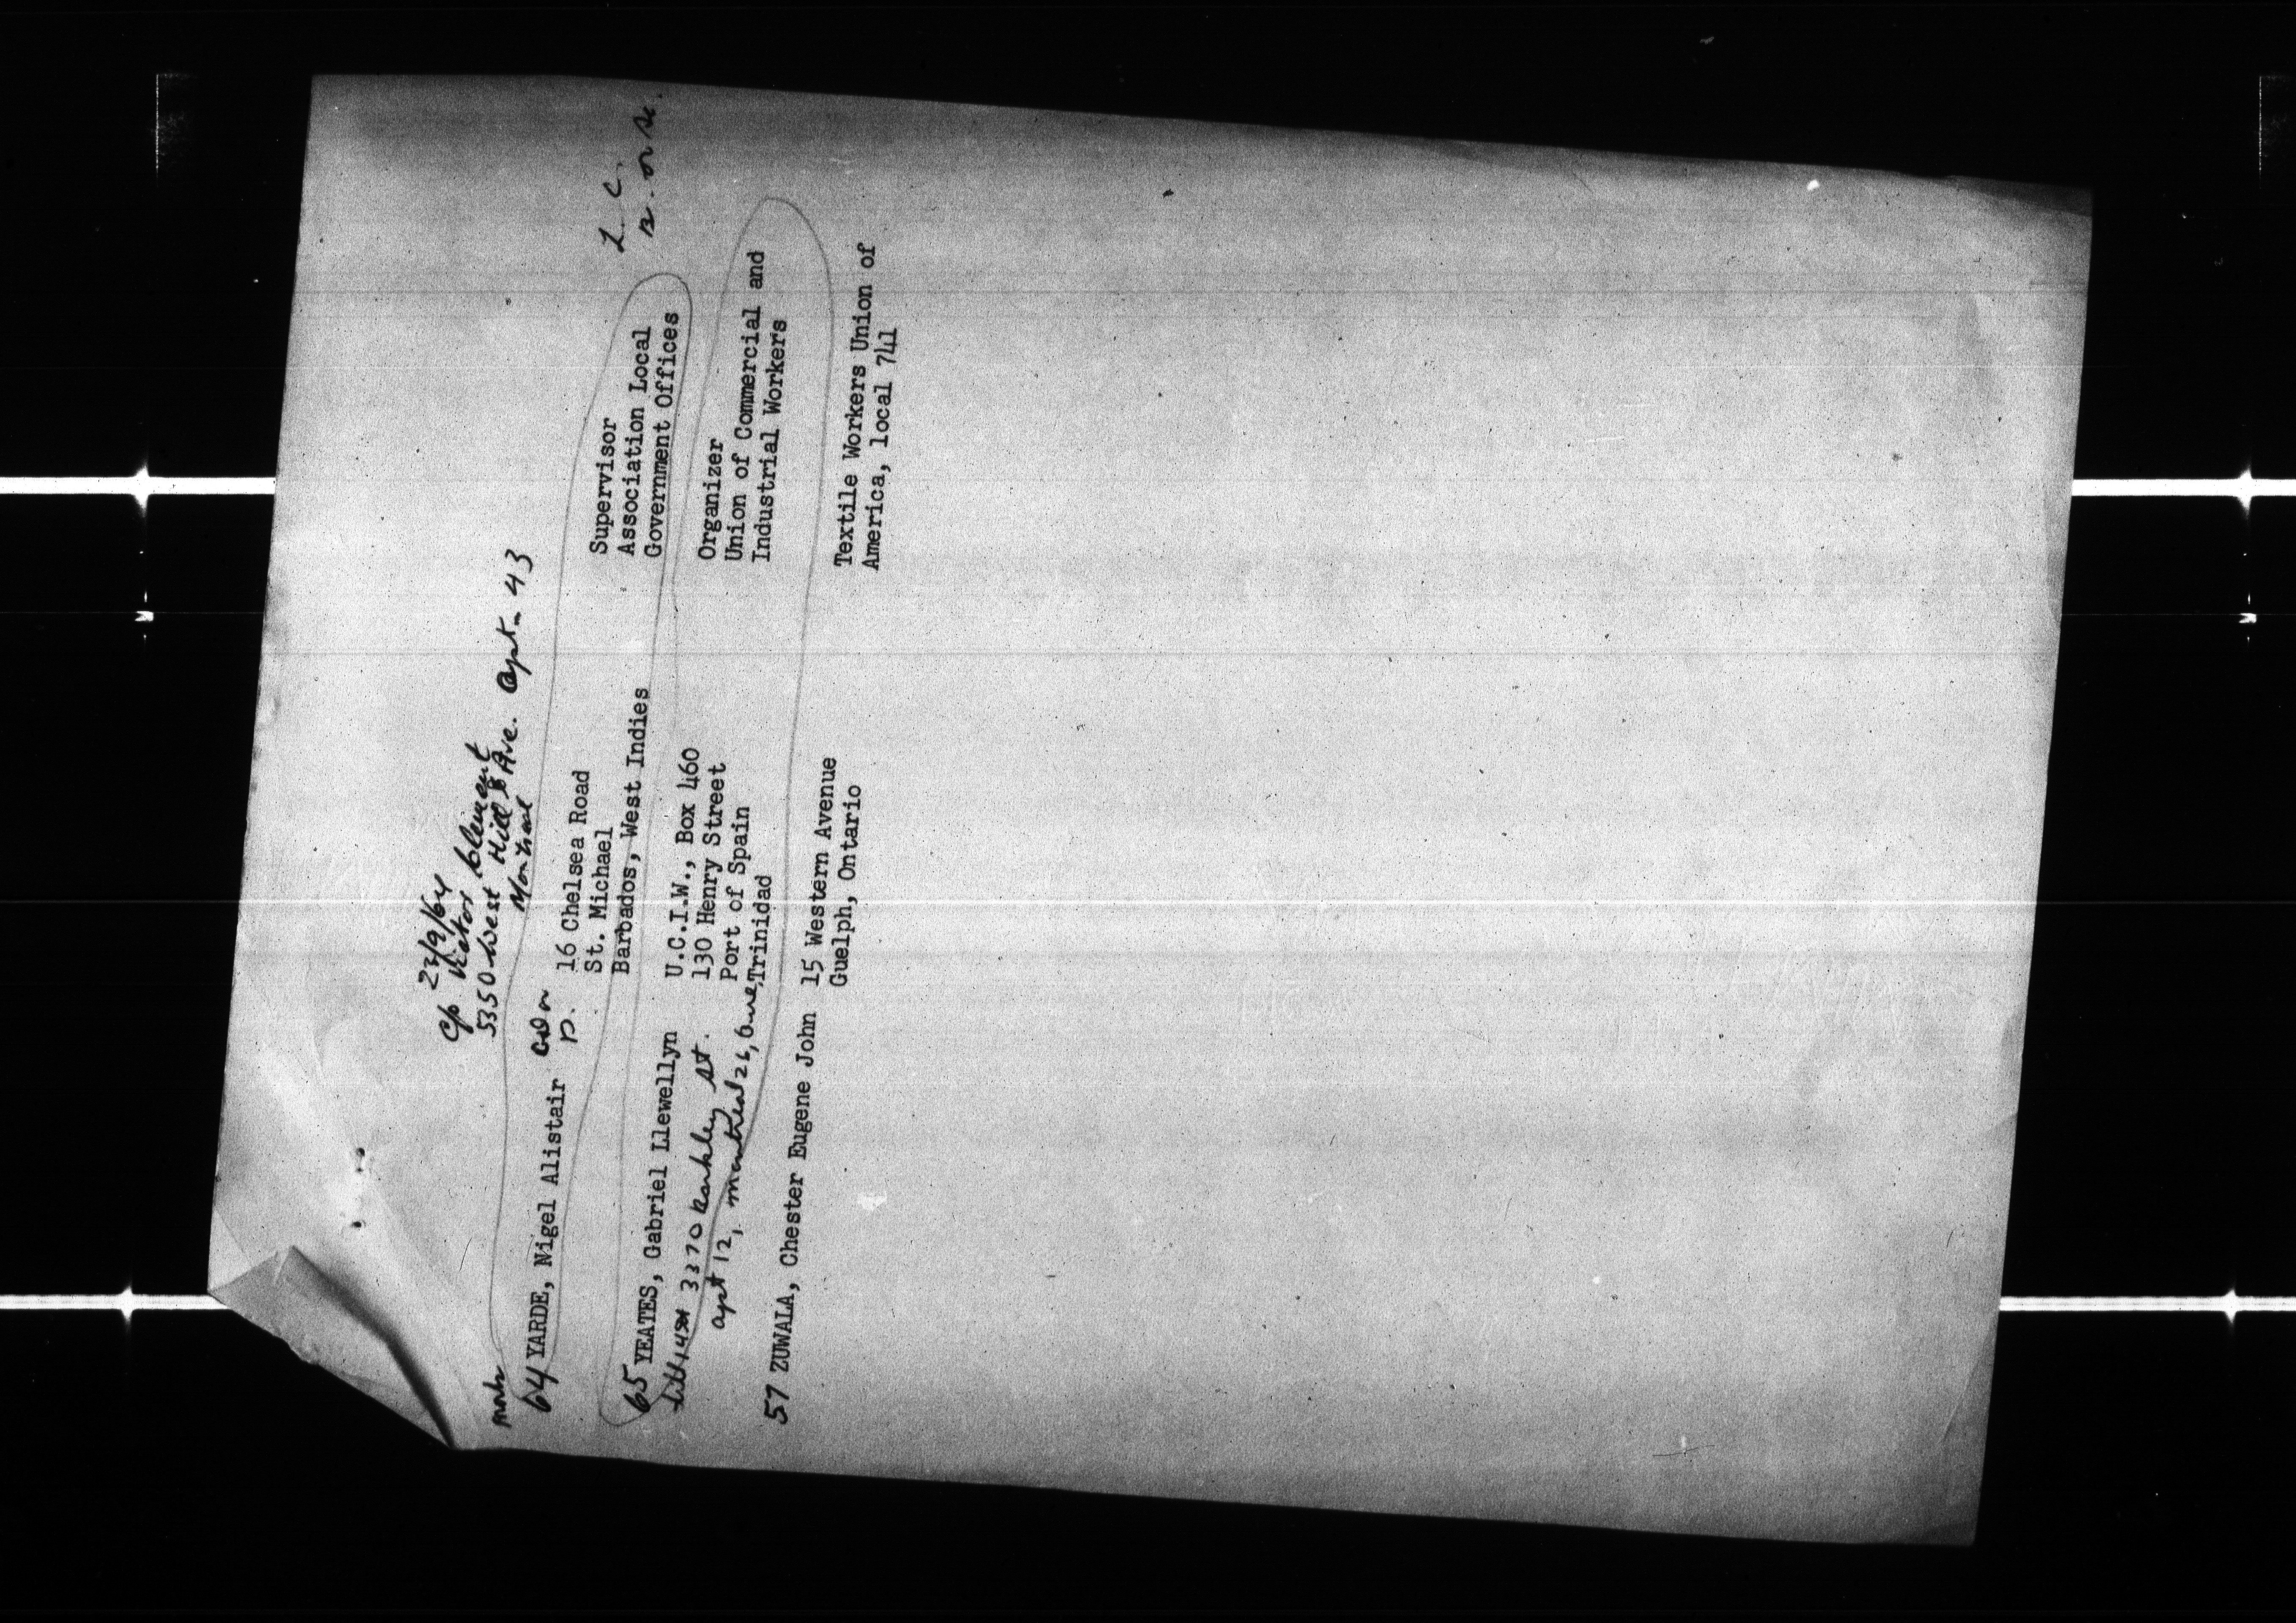 22/9/64
c/o Victor Clement
5350 West Hill Ave. Apt. 43
Montreal
64 YARDE, Nigel Alistair
16 Chelsea Road
St. Michael
Barbados, West Indies
Supervisor
Association Local
Government Offices
L. C.
65 YEATES, Gabriel Llewellyn
3370 Barkley St.
apt 12, Montreal 26, Que,
U.C.I.W., Box 460
130 Henry Street
Port of Spain
Trinidad
Organizer
Union of Commercial and
Industrial Workers
57 ZUWALA, Chester Eugene John
15 Western Avenue
Guelph, Ontario
Textile Workers Union of
America, local 741